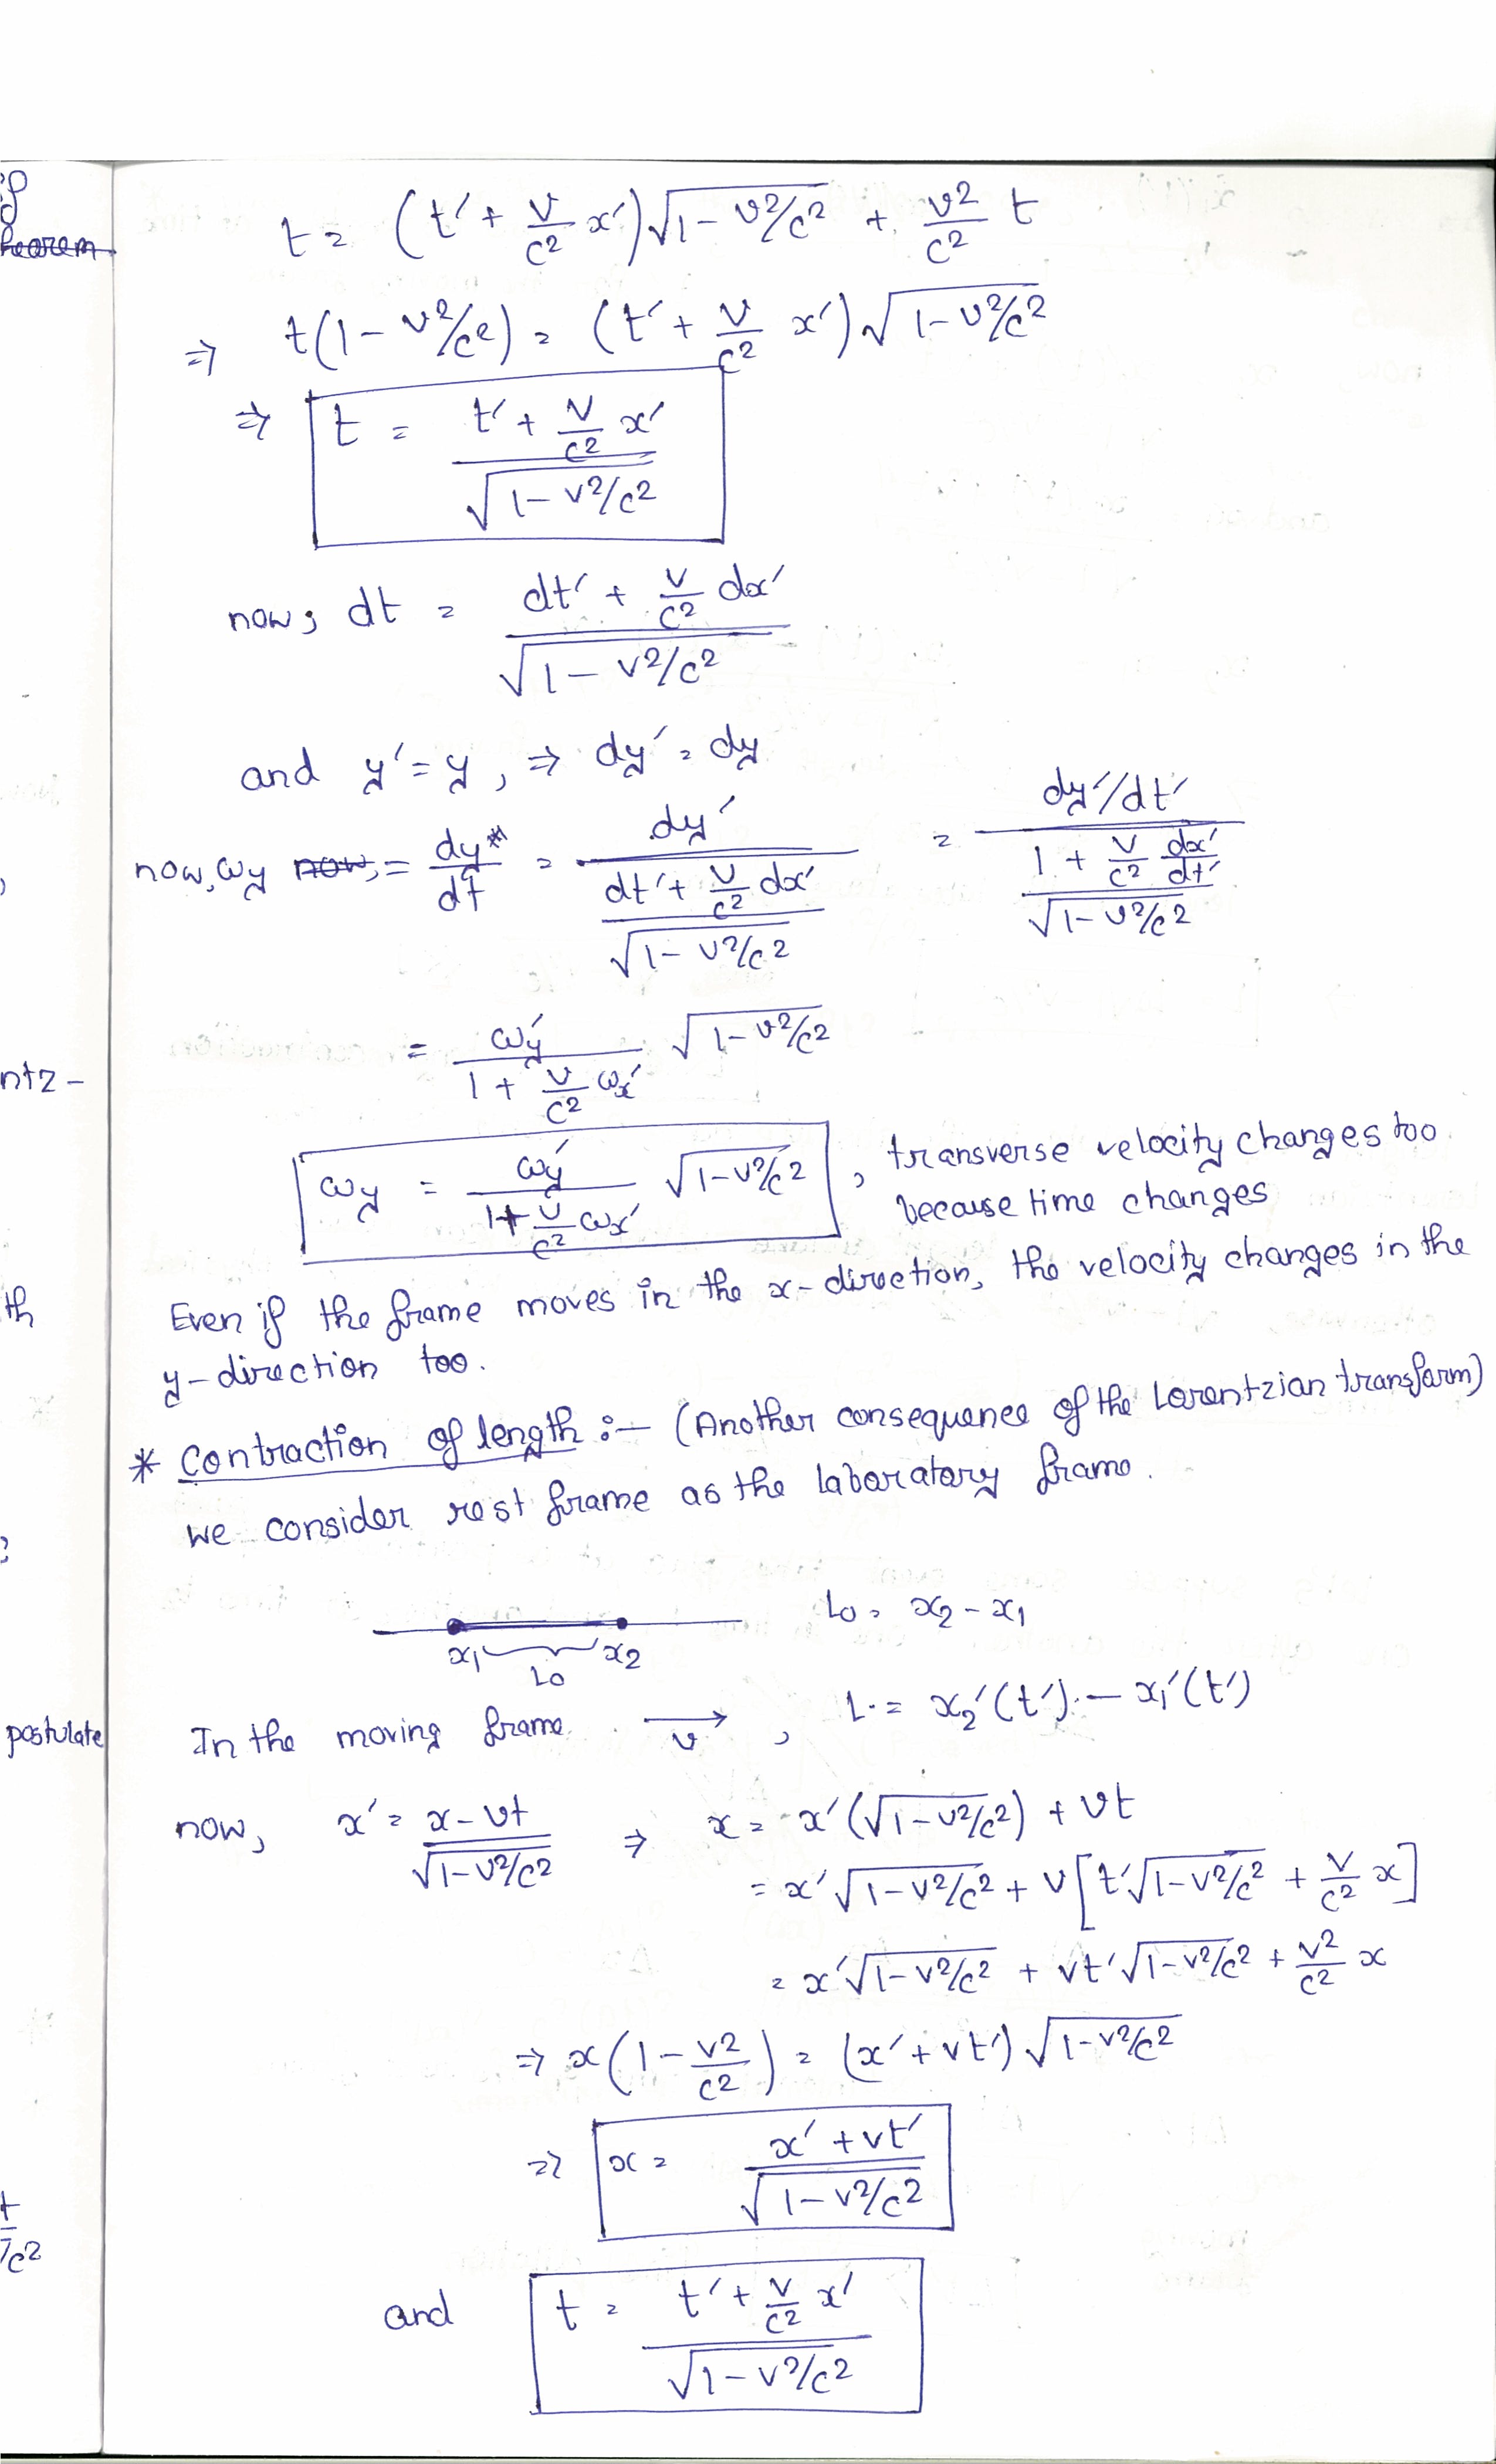 if
heorem
t = (t′ + v/c² x′)√(1 − v²/c²) + v²/c² t
⇒ t(1 − v²/c²) = (t′ + v/c² x′)√(1 − v²/c²)
⇒ t = (t′ + v/c² x′) / √(1 − v²/c²)
now; dt = (dt′ + v/c² dx′) / √(1 − v²/c²)
and y′ = y, ⇒ dy′ = dy
now, ωy now, = dy/dt = dy′ / ((dt′ + v/c² dx′) / √(1 − v²/c²)) = (dy′/dt′) / ((1 + v/c² dx′/dt′) / √(1 − v²/c²))
ntz -
= ωy′ / (1 + v/c² ωx′) √(1 − v²/c²)
ωy = ωy′ / (1 + v/c² ωx′) √(1 − v²/c²) , transverse velocity changes too
because time changes
th
Even if the frame moves in the x-direction, the velocity changes in the
y-direction too.
* Contraction of length :— (Another consequence of the Lorentzian transform)
We consider rest frame as the laboratory frame.
L0 = x2 − x1
x1 x2
L0
postulate
In the moving frame → v , L = x2′(t′) − x1′(t′)
now, x′ = (x − vt) / √(1 − v²/c²) ⇒ x = x′(√(1 − v²/c²)) + vt
= x′√(1 − v²/c²) + v[t′√(1 − v²/c²) + v/c² x]
= x′√(1 − v²/c²) + vt′√(1 − v²/c²) + v²/c² x
⇒ x(1 − v²/c²) = (x′ + vt′)√(1 − v²/c²)
⇒ x = (x′ + vt′) / √(1 − v²/c²)
/c²
and t = (t′ + v/c² x′) / √(1 − v²/c²)